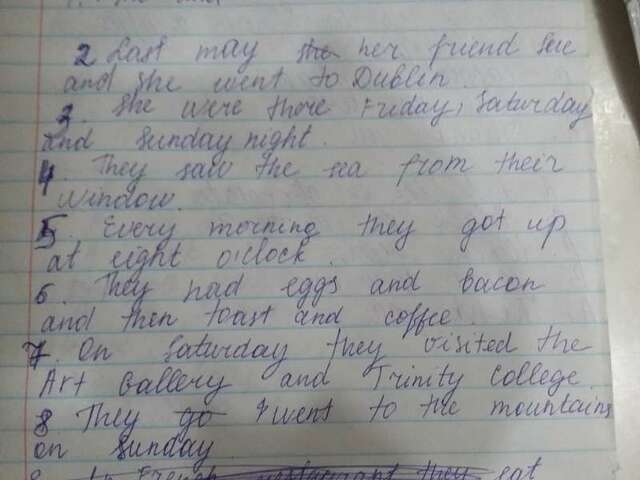 2 Last may she her friend Sue
and she went to Dublin.
3. She were there Friday, Saturday
and Sunday night.
4. They saw the sea from their
window.
5. Every morning they got up
at eight o'clock.
6. They had eggs and bacon
and then toast and coffee.
7. On Saturday they visited the
Art Gallery and Trinity College.
8 They go went to the mountains
on Sunday
to French restaurant they eat